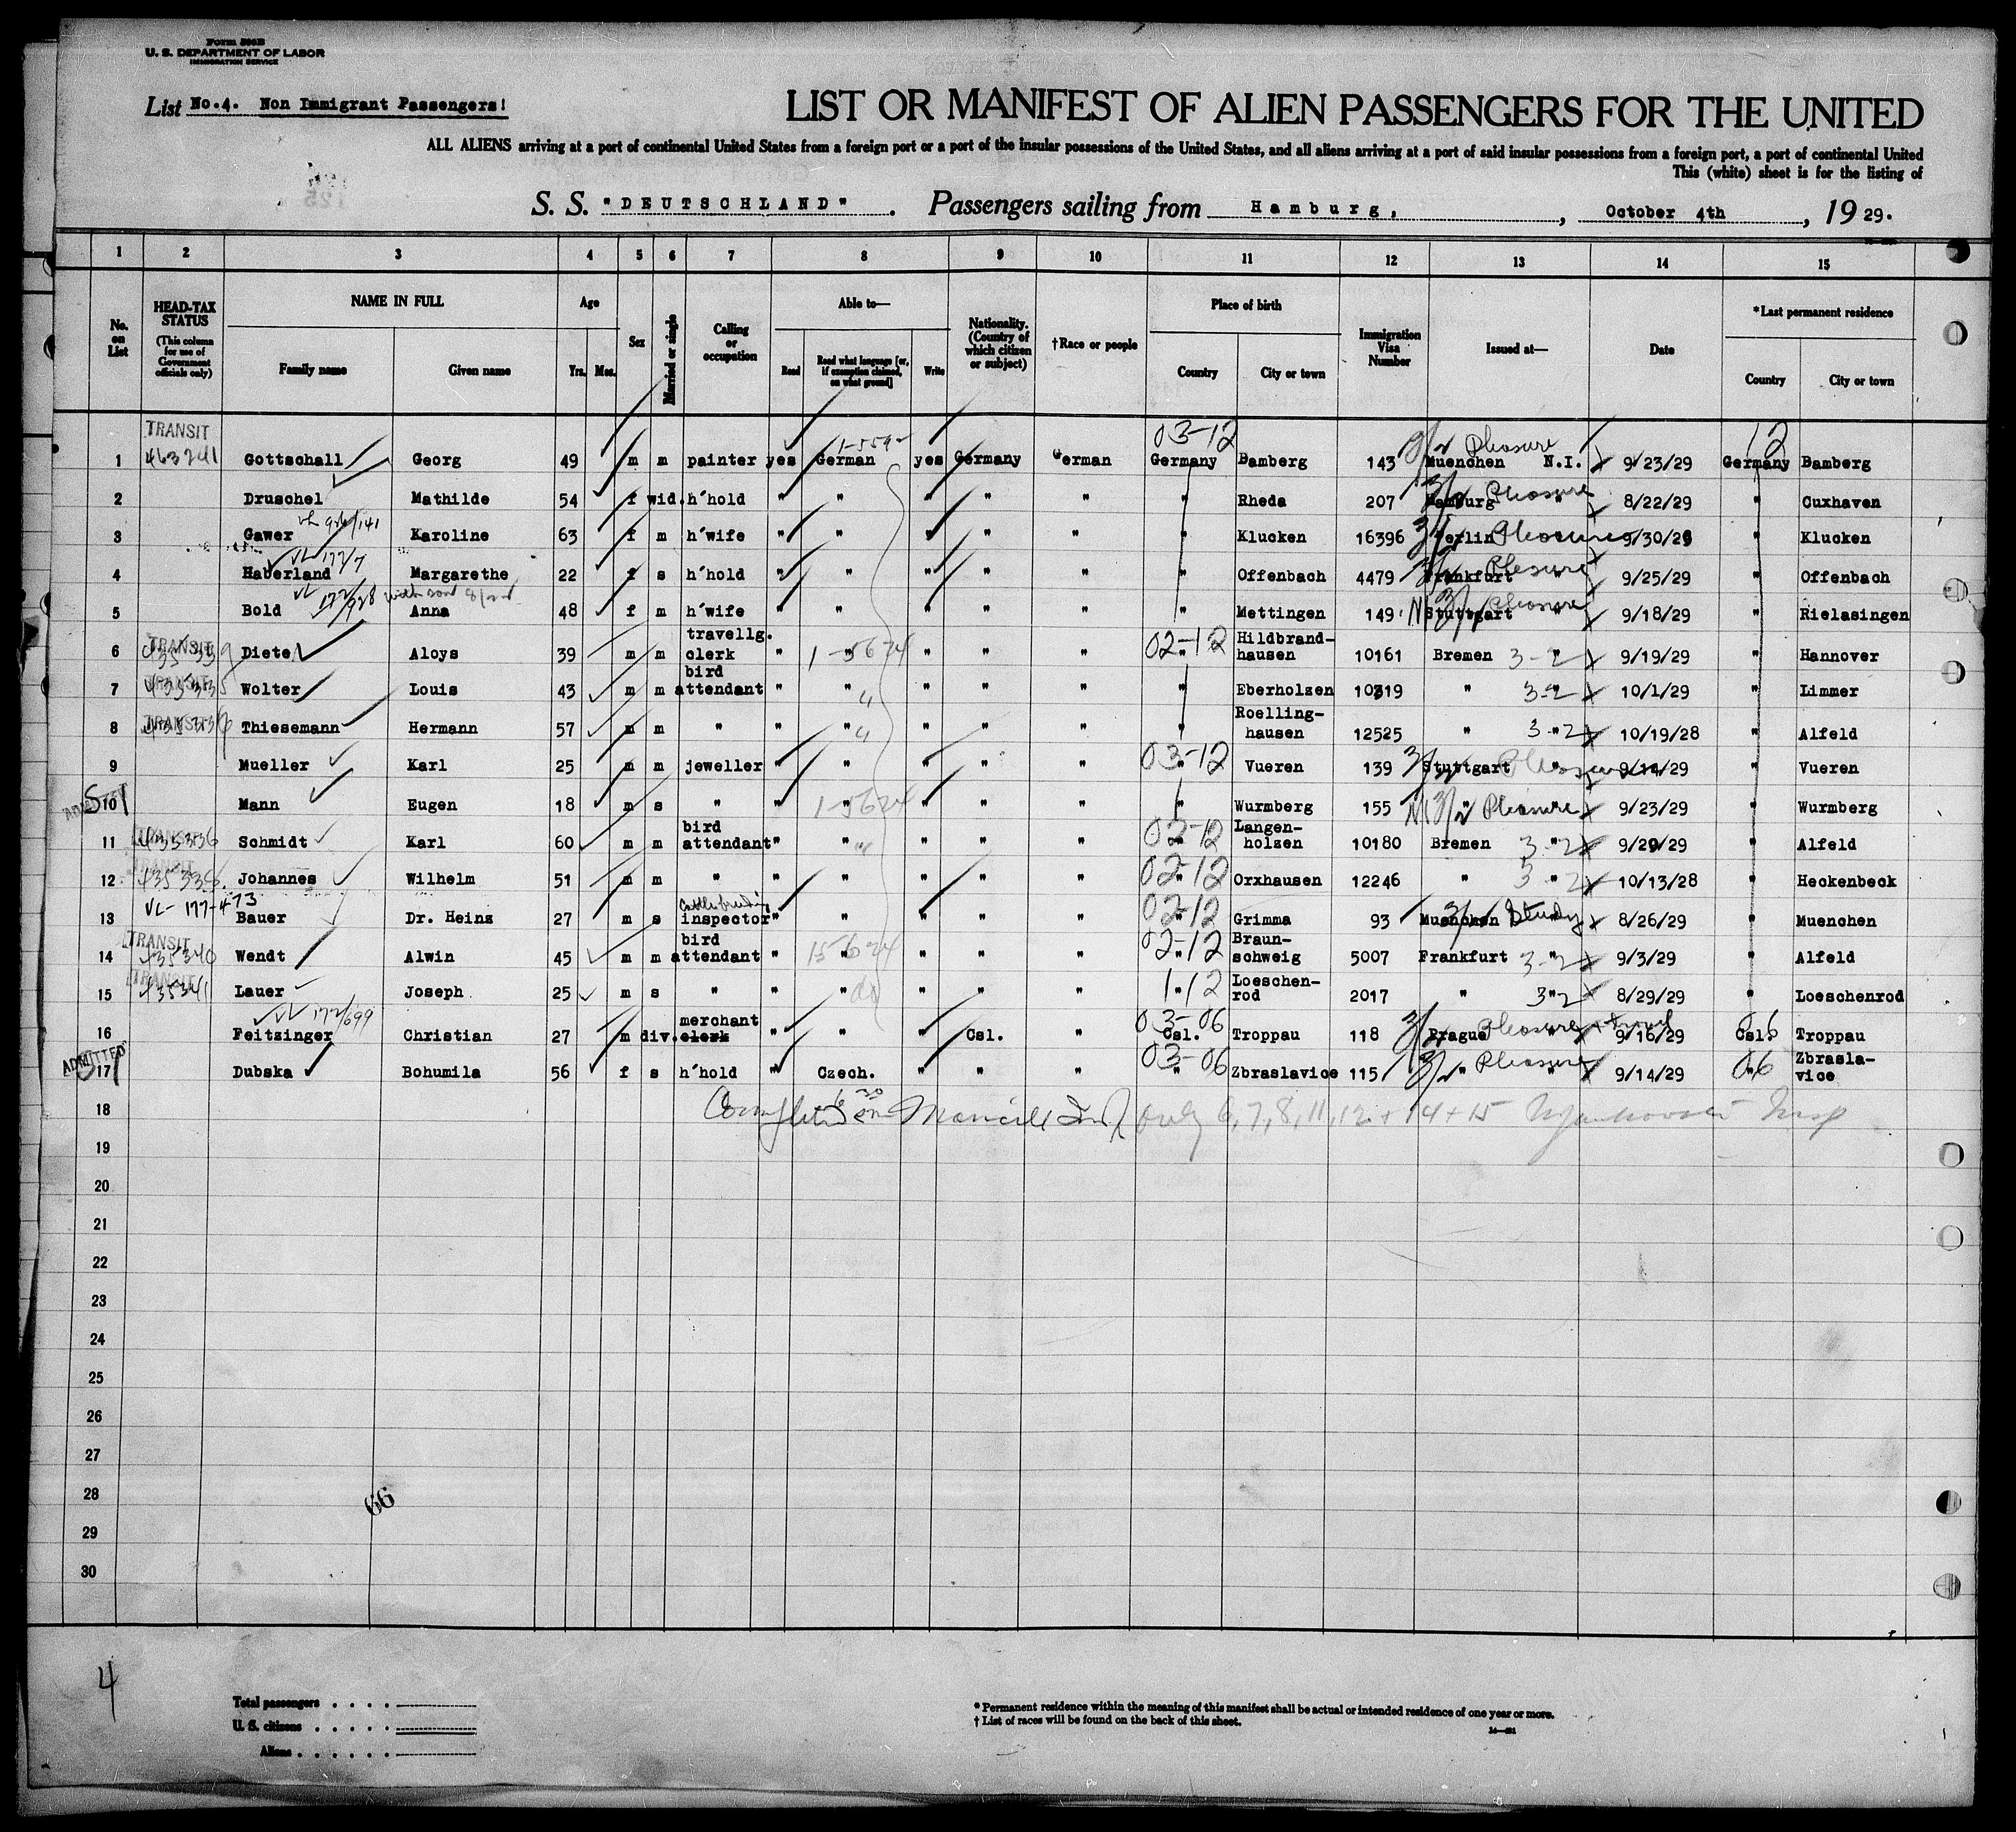 Form 500B
U. S. DEPARTMENT OF LABOR
IMMIGRATION SERVICE
List No.4. Non Immigrant Passengers!
LIST OR MANIFEST OF ALIEN PASSENGERS FOR THE UNITED
ALL ALIENS arriving at a port of continental United States from a foreign port or a port of the insular possessions of the United States, and all aliens arriving at a port of said insular possessions from a foreign port, a port of continental United
This (white) sheet is for the listing of
S. S. "DEUTSCHLAND". Passengers sailing from Hamburg, , October 4th , 1929.
1 2 3 4 5 6 7 8 9 10 11 12 13 14 15
No. on List
HEAD-TAX STATUS (This column for use of Government officials only)
NAME IN FULL
Family name Given name
Age
Yrs. Mos.
Sex
Married or single
Calling or occupation
Able to—
Read Read what language [or, if exemption claimed, on what ground] Write
Nationality. (Country of which citizen or subject)
†Race or people
Place of birth
Country City or town
Immigration Visa Number
Issued at—
Date
*Last permanent residence
Country City or town
TRANSIT 03-12 Pleasure 12
1 463241 Gottschall Georg 49 m m painter yes German yes Germany German Germany Bamberg 143 Muenchen N.I. 9/23/29 Germany Bamberg
2 Druschel Mathilde 54 f wid. h'hold " " " " " " Rheda 207 Hamburg " Pleasure 8/22/29 " Cuxhaven
3 Gawer Karoline 63 f m h'wife " " " " " " Klucken 16396 Berlin Pleasure 9/30/29 " Klucken
VL 177/7
4 Haberland Margarethe 22 f s h'hold " " " " " " Offenbach 4479 Frankfurt " Pleasure 9/25/29 " Offenbach
5 Bold Anna 48 f m h'wife " " " " " " Mettingen 149 Stuttgart " Pleasure 9/18/29 " Rielasingen
6 TRANSIT Dietel Aloys 39 m m travellg. clerk " " " " 02-12 " Hildbrand-hausen 10161 Bremen 3-2 " 9/19/29 " Hannover
7 TRANSIT Wolter Louis 43 m m bird attendant " " " " " " Eberholzen 10319 " 3-2 " 10/1/29 " Limmer
8 TRANSIT Thiesemann Hermann 57 m m " " " " " " " Roelling-hausen 12525 " 3-2 " 10/19/28 " Alfeld
9 Mueller Karl 25 m m jeweller " " " " " 03-12 " Vueren 139 Stuttgart " Pleasure 9/14/29 " Vueren
10 Mann Eugen 18 m s " " " " " " " Wurmberg 155 " Pleasure " 9/23/29 " Wurmberg
11 TRANSIT Schmidt Karl 60 m m bird attendant " " " " " 02-12 " Langen-holzen 10180 Bremen 3-2 " 9/20/29 " Alfeld
12 TRANSIT Johannes Wilhelm 51 m m " " " " " " 02-12 Orxhausen 12246 " 3-2 " 10/13/28 " Heckenbeck
VL- 177-473
13 Bauer Dr. Heinz 27 m s inspector " " " " " 02-12 Grimma 93 Muenchen Study 8/26/29 " Muenchen
14 TRANSIT 435340 Wendt Alwin 45 m m bird attendant " " " " " 02-12 " Braun-schweig 5007 Frankfurt 3-2 " 9/3/29 " Alfeld
15 TRANSIT 435341 Lauer Joseph 25 m s " " " do " " " 1-12 " Loeschen-rod 2017 " 3-2 " 8/29/29 " Loeschenrod
VL 172/699
16 Feitzinger Christian 27 m div. merchant clerk " " " Csl. " 03-06 Csl. Troppau 118 Prague Pleasure + travel 9/16/29 Csl. 06 Troppau
ADMITTED
17 Dubska Bohumila 56 f s h'hold " Czech. " " " 03-06 " Zbraslavice 115 " Pleasure " 9/14/29 06 " Zbrasla-vice
18 only 6, 7, 8, 11, 12 + 14 + 15
19
20
21
22
23
24
25
26
27
28
66
29
30
4
Total passengers . . . .
U. S. citizens . . . . .
Aliens . . . . . .
* Permanent residence within the meaning of this manifest shall be actual or intended residence of one year or more.
† List of races will be found on the back of this sheet.